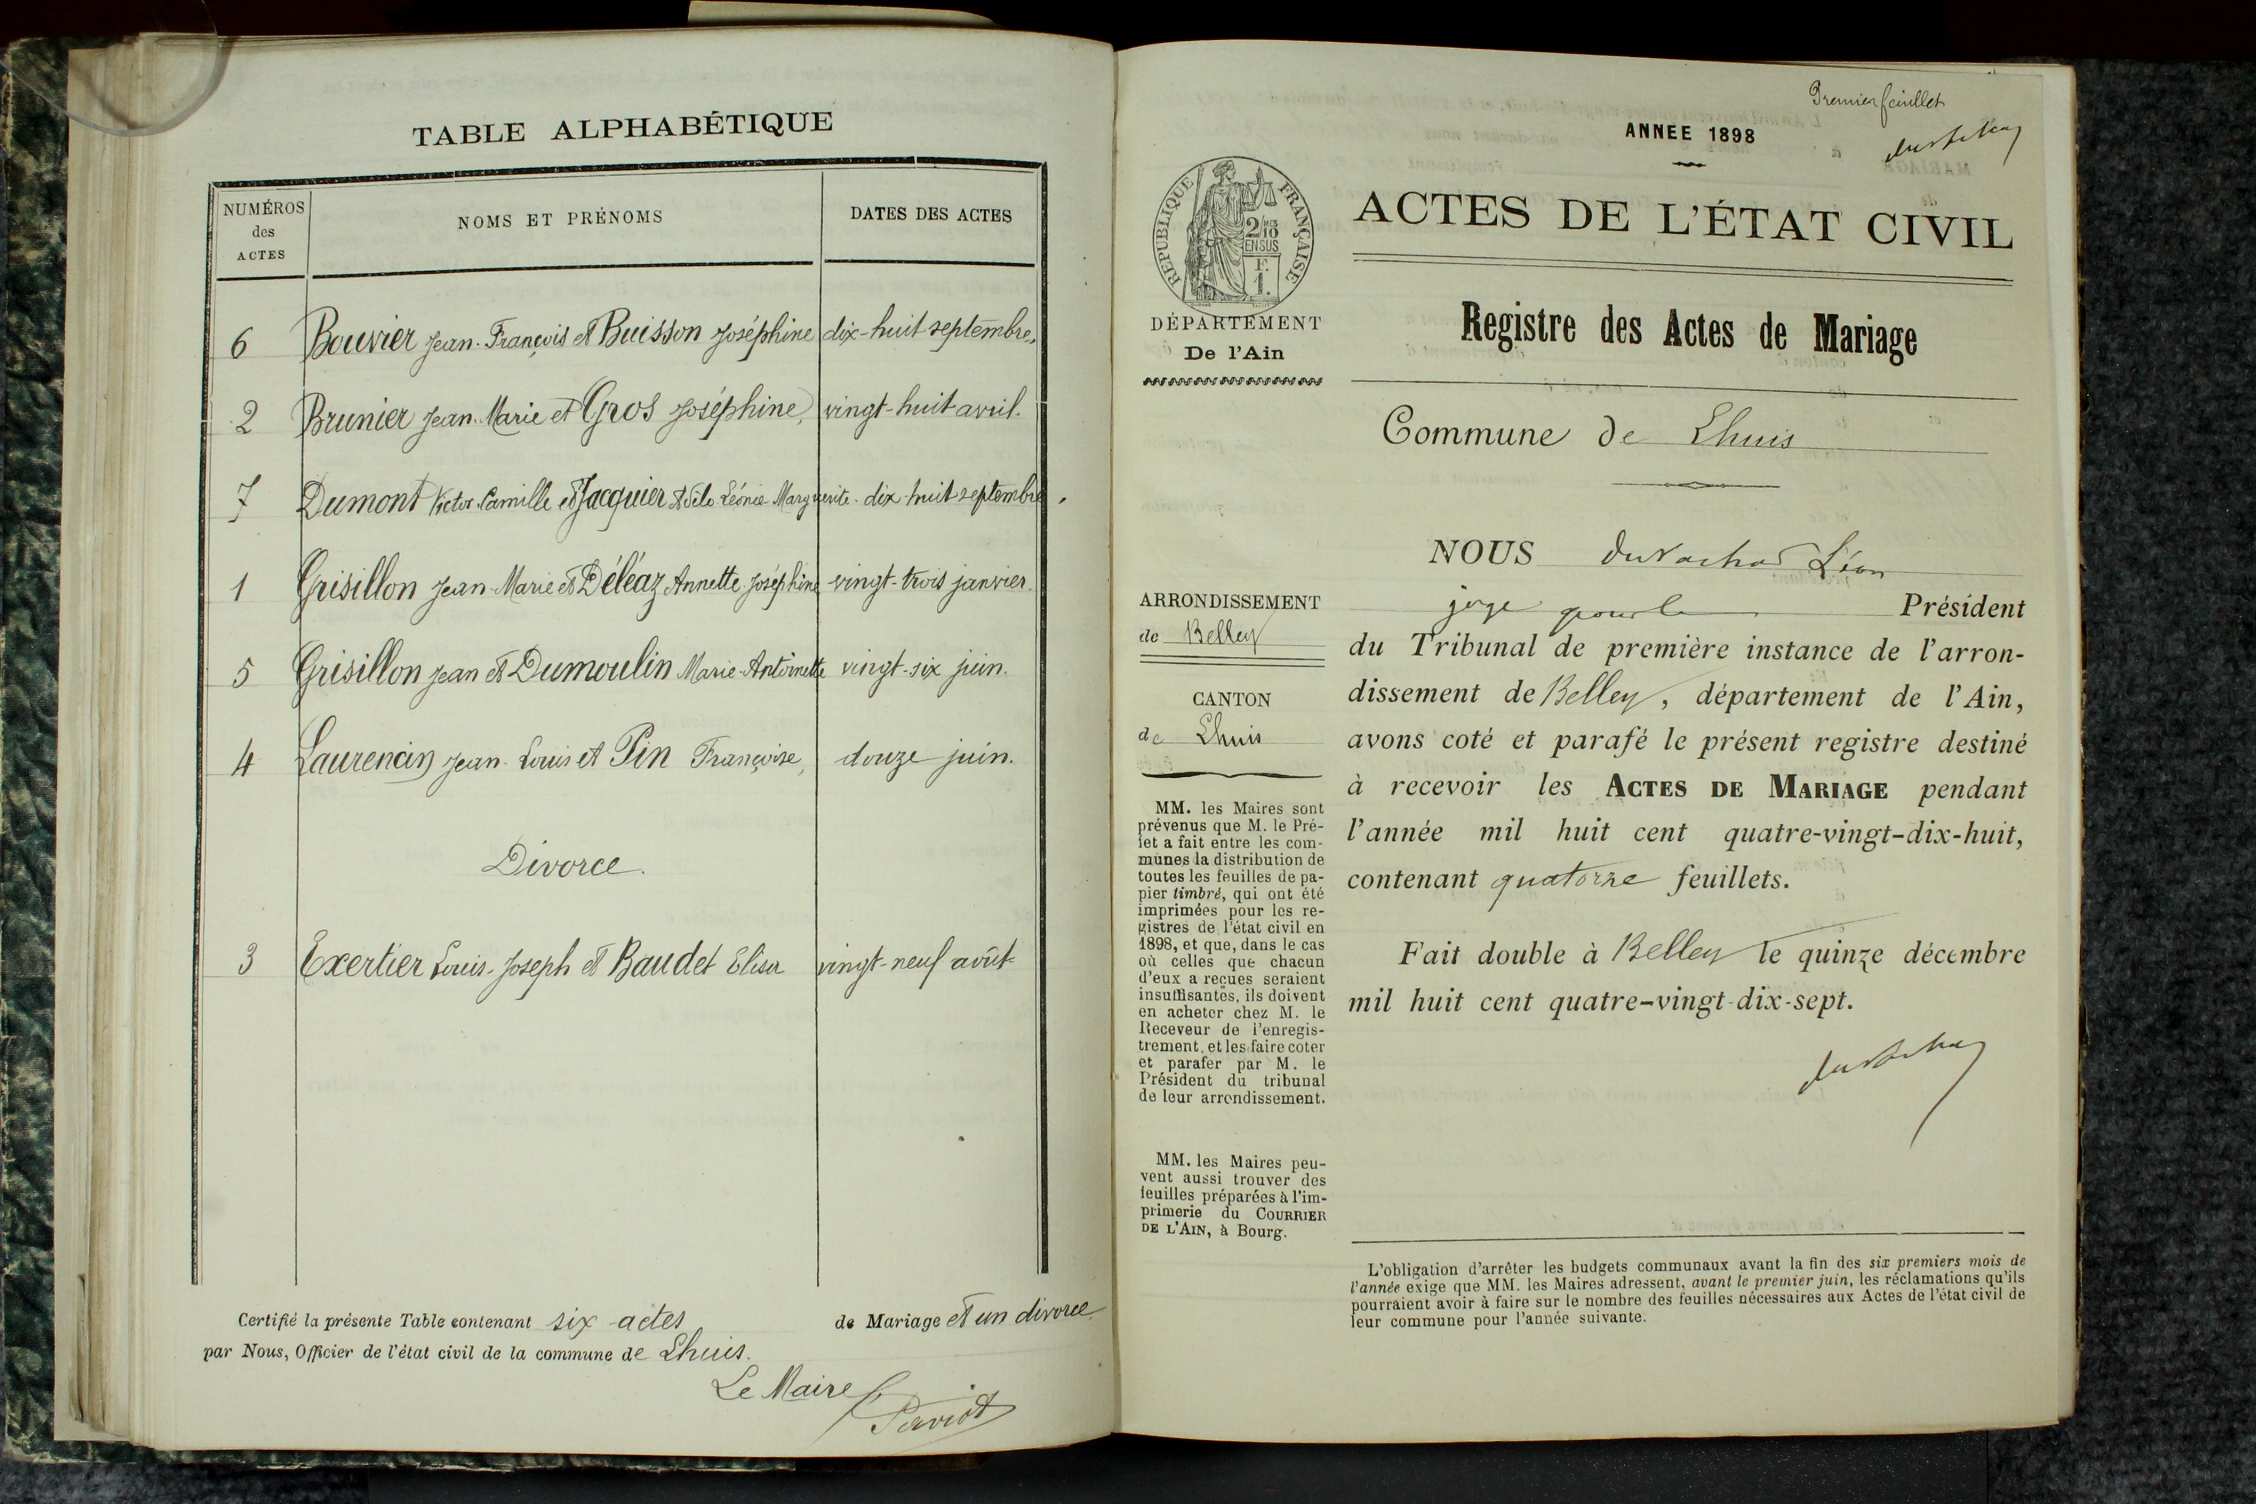 TABLE ALPHABÉTIQUE
NUMÉROS
des
ACTES
NOMS ET PRÉNOMS
DATES DES ACTES
6 Bouvier Jean-François et Buisson Joséphine dix-huit septembre.
2 Brunier Jean-Marie et Gros Joséphine, vingt-huit avril.
7 Dumont Victor Camille et Jacquier Adèle Léonie Marguerite. dix-huit septembre.
1 Grisillon Jean-Marie et Déléaz Annette Joséphine vingt-trois janvier.
5 Grisillon Jean et Dumoulin Marie-Antoinette vingt-six juin.
4 Laurencin Jean-Louis et Pin Françoise, douze juin.
Divorce.
3 Exertier Louis-Joseph et Baudet Elisa vingt-neuf août
Certifié la présente Table contenant six actes de Mariage et un divorce
par Nous, Officier de l'état civil de la commune de Lhuis.
Le Maire
Premier feuillet
ANNEE 1898
RÉPUBLIQUE FRANÇAISE
2/10
EN SUS
F.
1.
DÉPARTEMENT
De l'Ain
ARRONDISSEMENT
de Belley
CANTON
de Lhuis
MM. les Maires sont
prévenus que M. le Pré-
fet a fait entre les com-
munes la distribution de
toutes les feuilles de pa-
pier timbré, qui ont été
imprimées pour les re-
gistres de l'état civil en
1898, et que, dans le cas
où celles que chacun
d'eux a reçues seraient
insuffisantes, ils doivent
en acheter chez M. le
Receveur de l'enregis-
trement, et les faire coter
et parafer par M. le
Président du tribunal
de leur arrondissement.
MM. les Maires peu-
vent aussi trouver des
feuilles préparées à l'im-
primerie du COURRIER
DE L'AIN, à Bourg.
ACTES DE L'ÉTAT CIVIL
Registre des Actes de Mariage
Commune de Lhuis
NOUS Léon
juge pour le Président
du Tribunal de première instance de l'arron-
dissement de Belley, département de l'Ain,
avons coté et parafé le présent registre destiné
à recevoir les ACTES DE MARIAGE pendant
l'année mil huit cent quatre-vingt-dix-huit,
contenant quatorze feuillets.
Fait double à Belley le quinze décembre
mil huit cent quatre-vingt-dix-sept.
L'obligation d'arrêter les budgets communaux avant la fin des six premiers mois de
l'année exige que MM. les Maires adressent, avant le premier juin, les réclamations qu'ils
pourraient avoir à faire sur le nombre des feuilles nécessaires aux Actes de l'état civil de
leur commune pour l'année suivante.